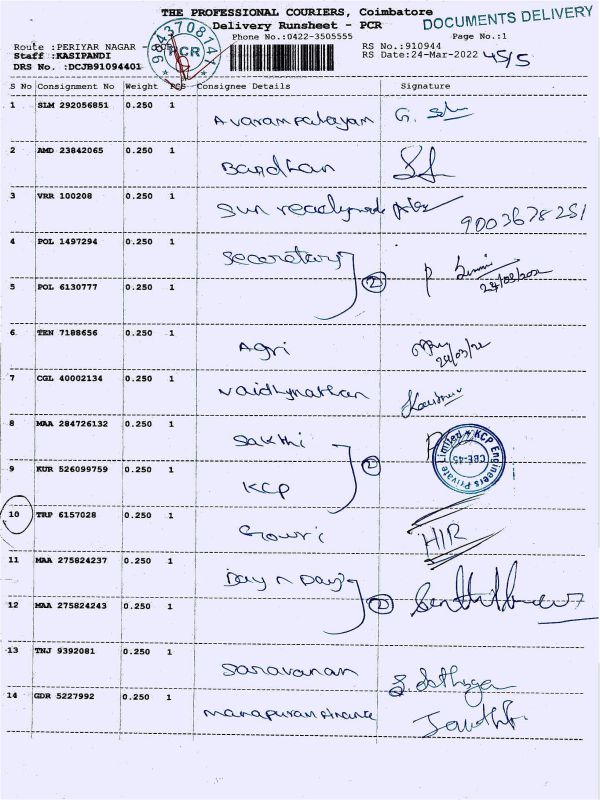 THE PROFESSIONAL COURIERS, Coimbatore
Delivery Runsheet - PCR
DOCUMENTS DELIVERY
Phone No.:0422-3505555
Page No.:1
Route :PERIYAR NAGAR
RS No.:910944
Staff :KASIPANDI
RS Date:24-Mar-2022 45/5
DRS No. :DCJB91094401
9843708141
PCR
S No Consignment No Weight PCS Consignee Details Signature
1 SLM 292056851 0.250 1 Avarampalayam
2 AMD 23842065 0.250 1 Bardhan
3 VRR 100208 0.250 1 Sun readymade 9003678251
4 POL 1497294 0.250 1 Secretary 2
5 POL 6130777 0.250 1
6 TEN 7188656 0.250 1 Agri 24/03/22
7 CGL 40002134 0.250 1 Vaidhynathan
8 MAA 284726132 0.250 1 Sakthi 2
KCP Engineers Private Limited
CBE-45
9 KUR 526099759 0.250 1 KCP
10 TRP 6157028 0.250 1 Gowri HIR
11 MAA 275824237 0.250 1 Day n Day 2
12 MAA 275824243 0.250 1
13 TNJ 9392081 0.250 1 Saravanan
14 GDR 5227992 0.250 1 manapuram finance